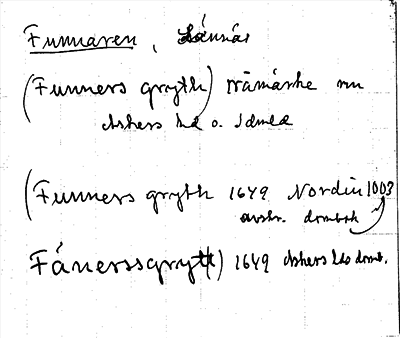 Funnaren, Lännäs
(Funners gryth) råmärke m
Askers hd o. Idmed
(Funners gryth 1649 Nordin 1003
avskr. dombok
Fánerssgrytt) 1649 Askers hds domb.